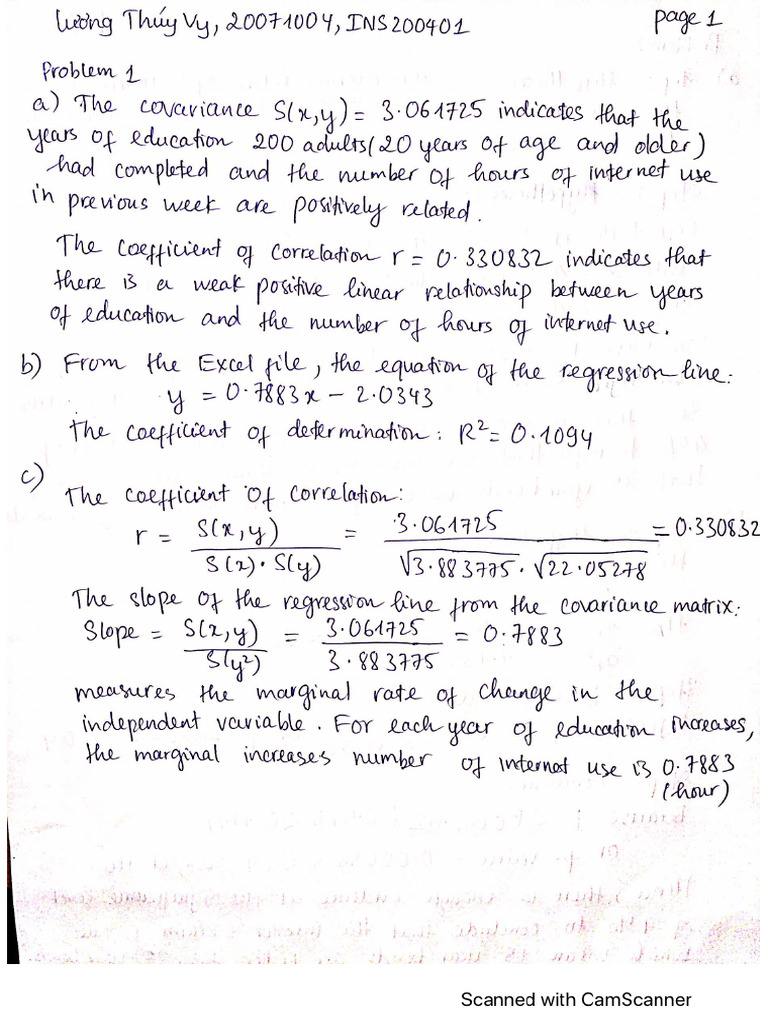 Lương Thúy Vy, 20071004, INS200401 page 1
Problem 1
a) The covariance S(x,y) = 3.061725 indicates that the
years of education 200 adults (20 years of age and older)
had completed and the number of hours of internet use
in previous week are positively related.
The coefficient of correlation r = 0.330832 indicates that
there is a weak positive linear relationship between years
of education and the number of hours of internet use.
b) From the Excel file, the equation of the regression line:
y = 0.7883x - 2.0343
The coefficient of determination: R² = 0.1094
c)
The coefficient of correlation:
r = S(x,y) / S(x).S(y) = 3.061725 / √3.883775 . √22.05278 = 0.330832
The slope of the regression line from the covariance matrix:
Slope = S(x,y) / S(y²) = 3.061725 / 3.883775 = 0.7883
measures the marginal rate of change in the
independent variable. For each year of education increases,
the marginal increases number of internet use is 0.7883
(hour)
Scanned with CamScanner